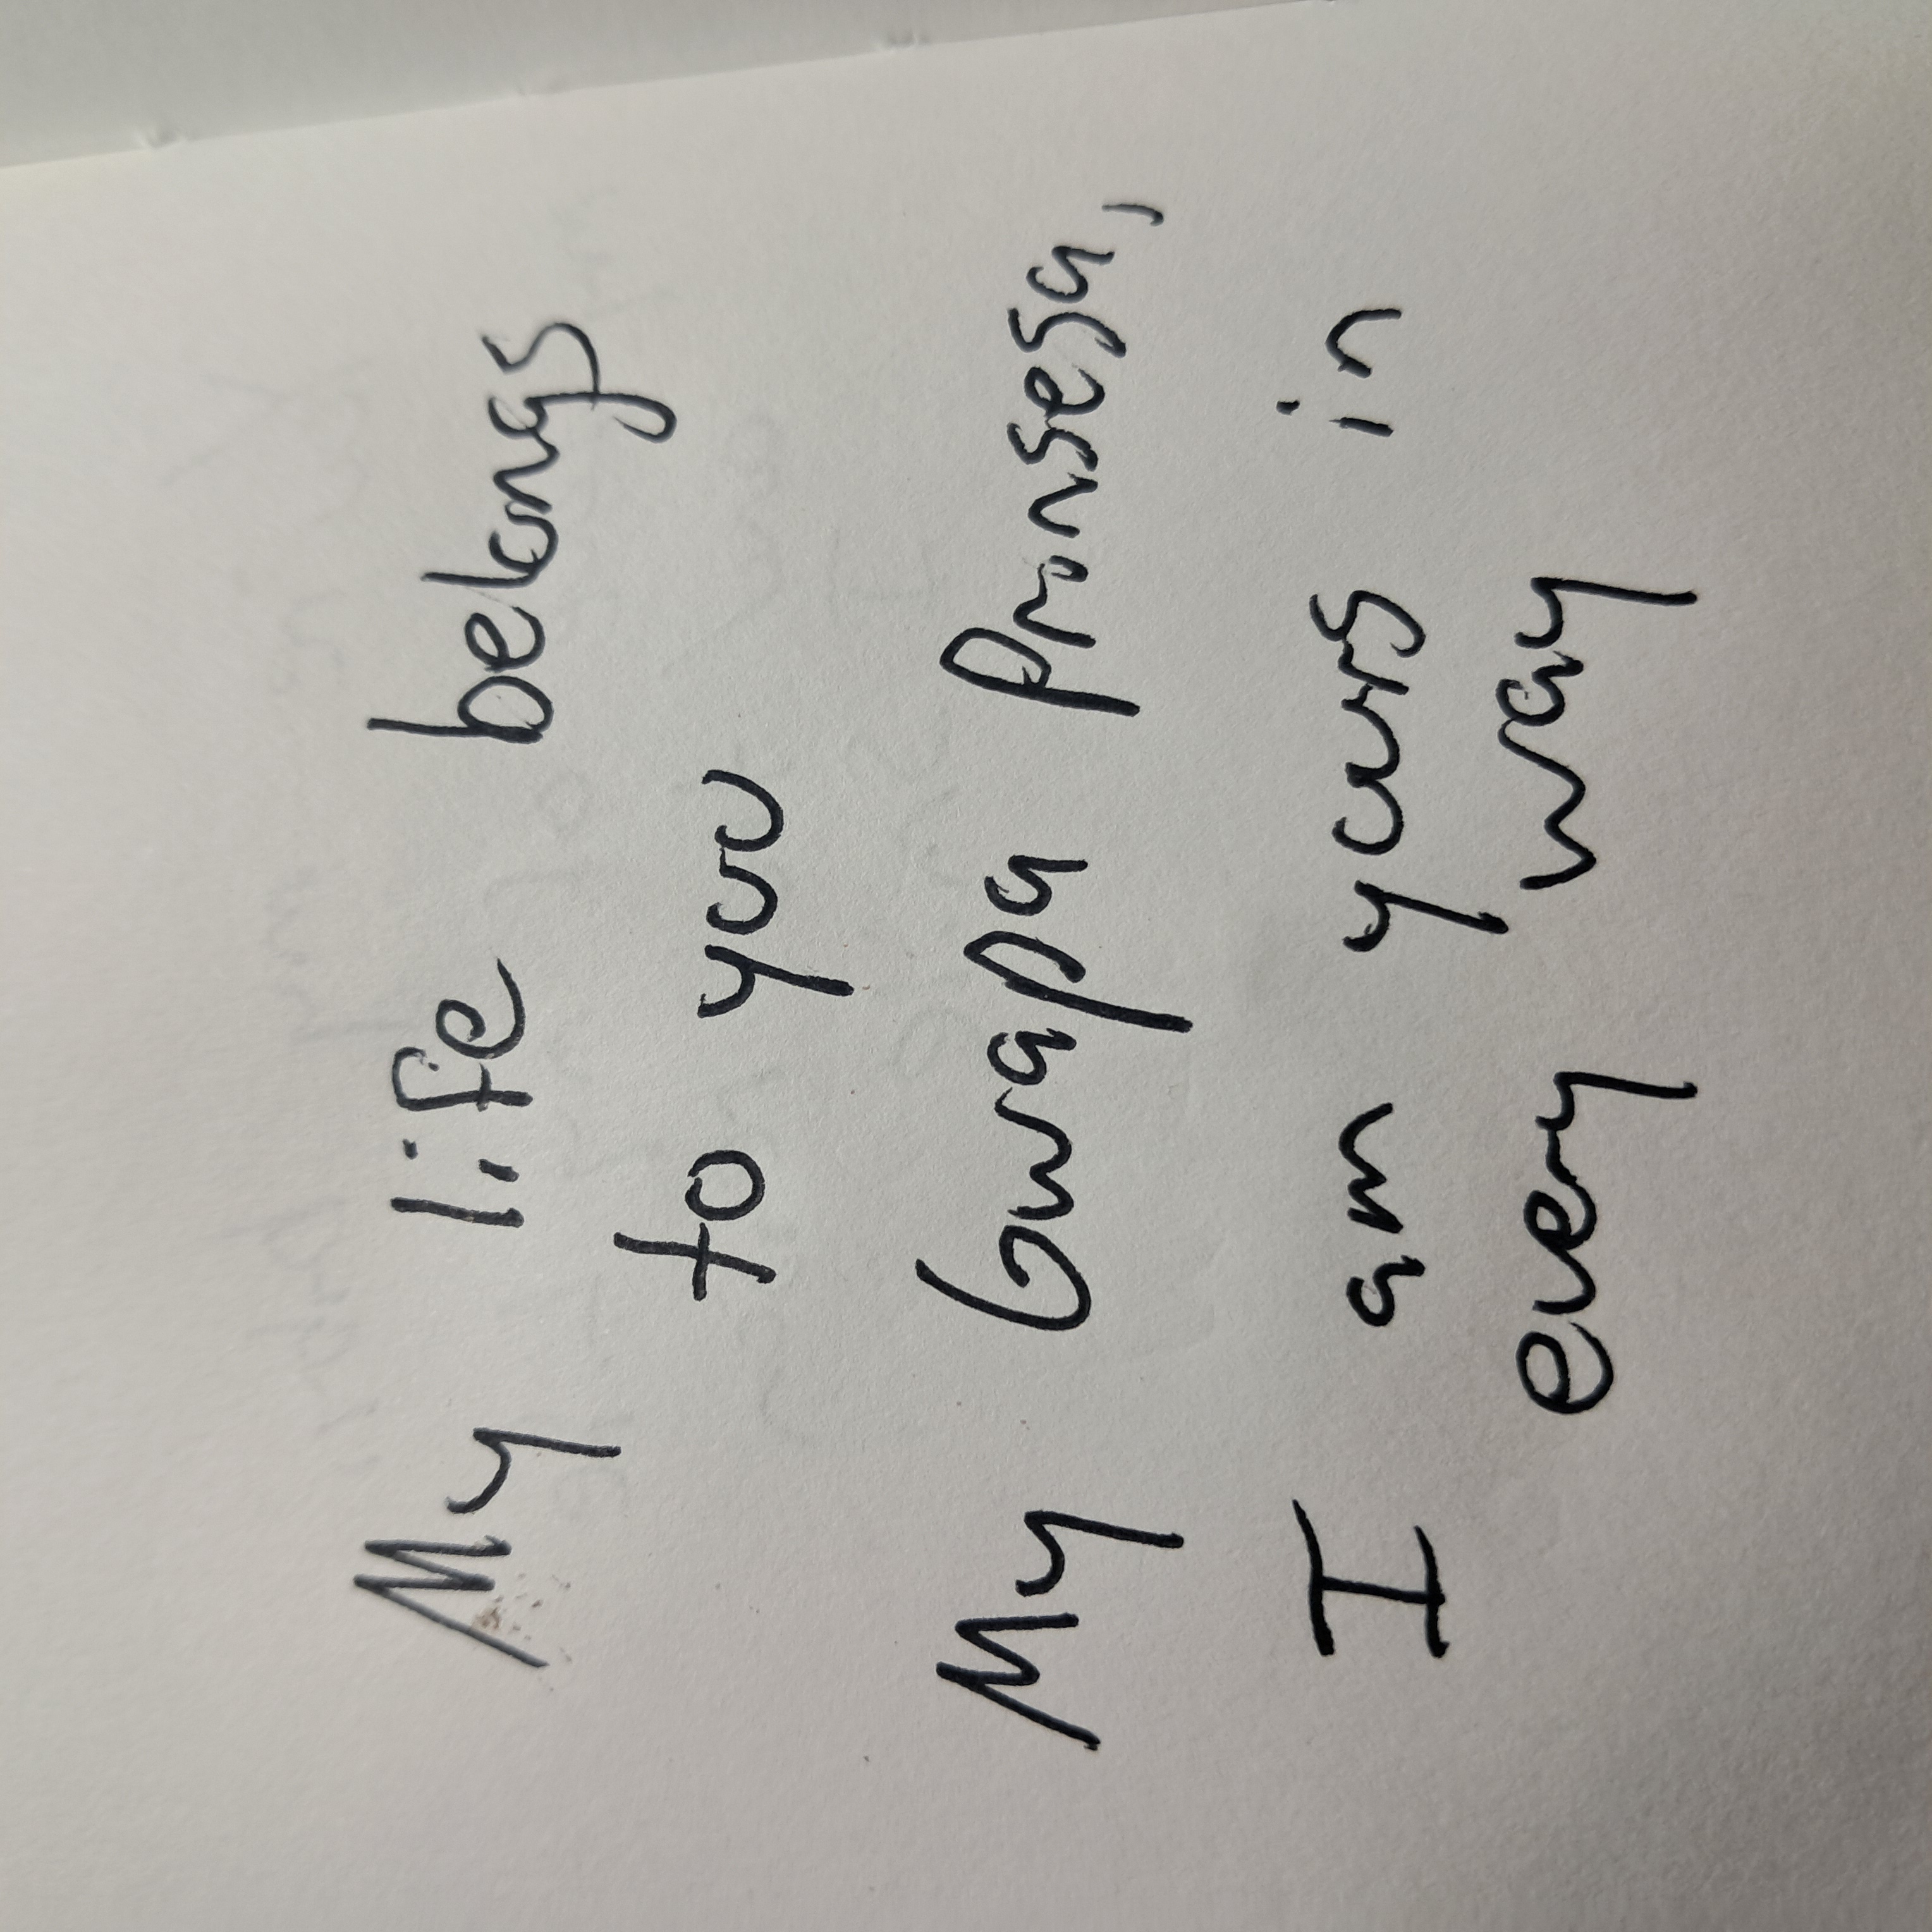 My life belongs
to you
My Gwapa Prinsesa,
I am yours in
every way